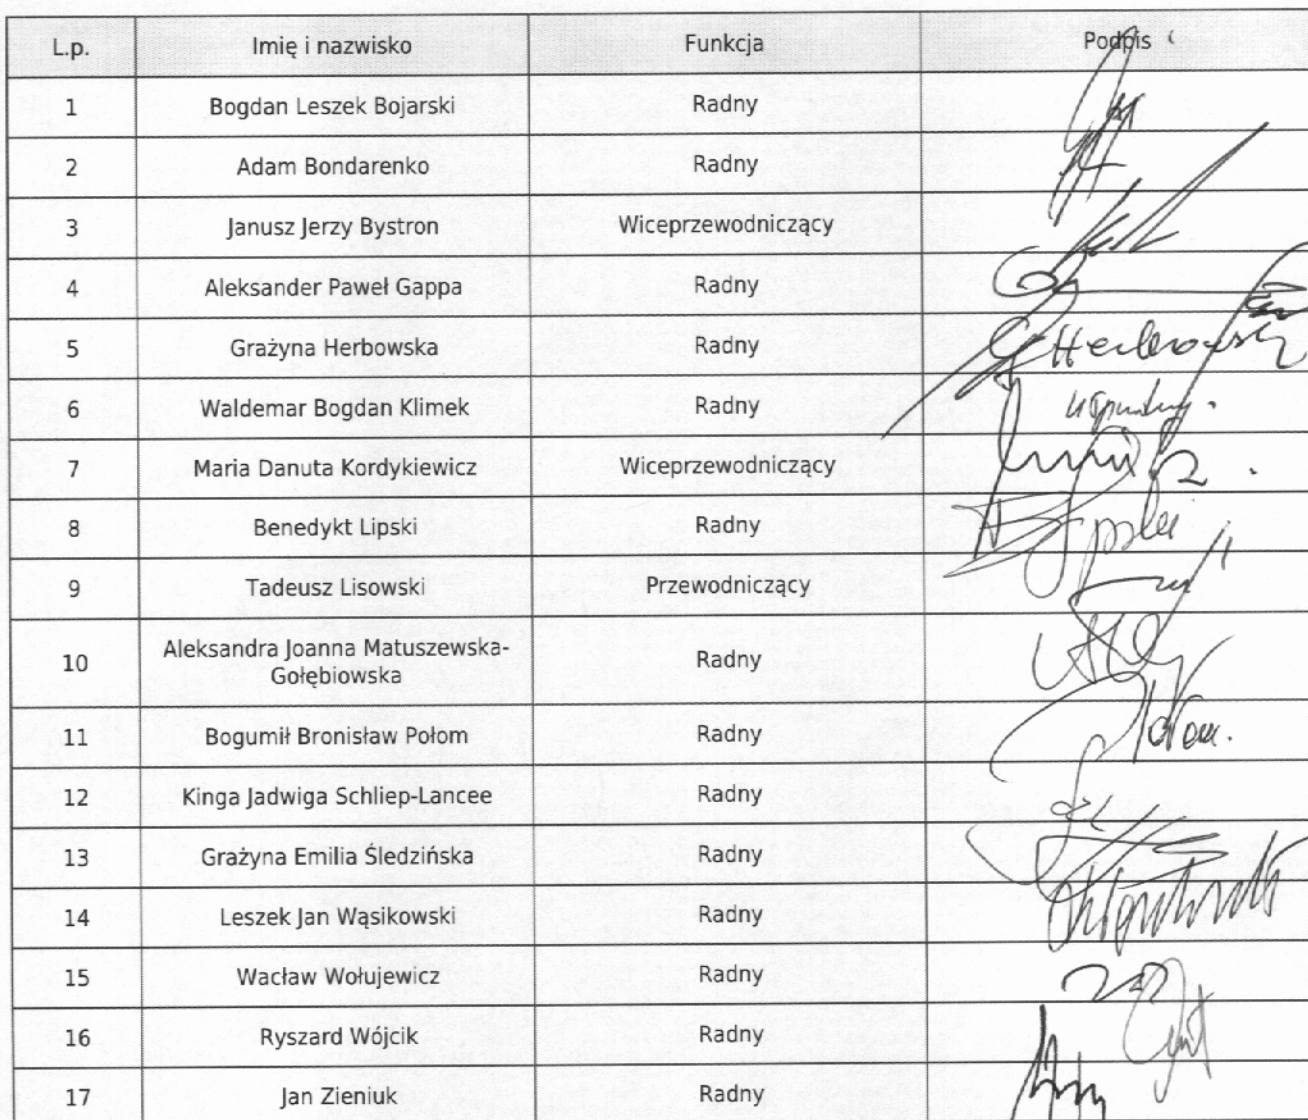 L.p. Imię i nazwisko Funkcja Podpis
1 Bogdan Leszek Bojarski Radny
2 Adam Bondarenko Radny
3 Janusz Jerzy Bystron Wiceprzewodniczący
4 Aleksander Paweł Gappa Radny
5 Grażyna Herbowska Radny GHerbowska
6 Waldemar Bogdan Klimek Radny
7 Maria Danuta Kordykiewicz Wiceprzewodniczący
8 Benedykt Lipski Radny
9 Tadeusz Lisowski Przewodniczący
10 Aleksandra Joanna Matuszewska-
Gołębiowska Radny
11 Bogumił Bronisław Połom Radny
12 Kinga Jadwiga Schliep-Lancee Radny
13 Grażyna Emilia Śledzińska Radny
14 Leszek Jan Wąsikowski Radny
15 Wacław Wołujewicz Radny
16 Ryszard Wójcik Radny
17 Jan Zieniuk Radny